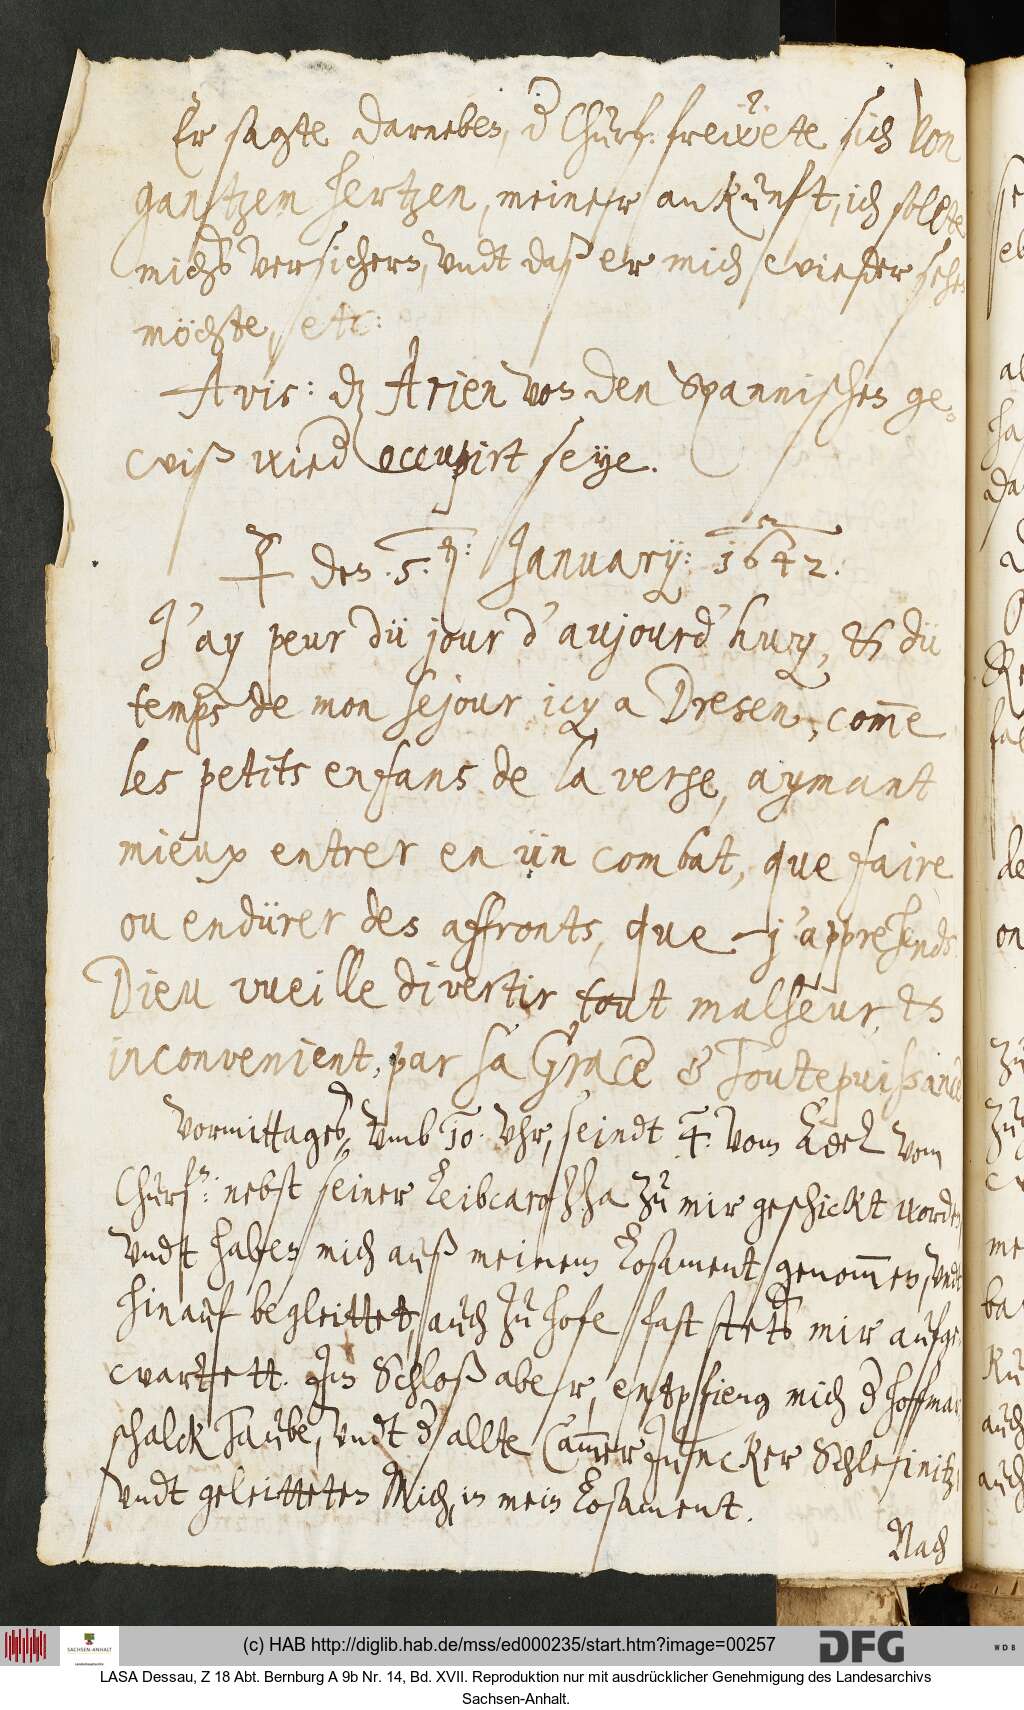 Er sagte darneben, d Churf: frewete sich von
gantzem hertzen, meiner ankunft, ich sollte
michs versichern, vndt daß er mich wieder sehen
möchte, etc:
Avis: dz Arien von den Spannischen ge-
wiß wied occupirt seye.
den .5. January: 1642.
J'ay peur dü jour d'aujourd'huy, & dü
temps de mon sejour icy a Dresen, com̅e
les petits enfans de la verge, aymant
mieux entrer en ün combat, que faire
ou endürer des affronts, que j'apprehends.
Dieu vueille divertir tout malheur, &
inconvenient, par sa Grace & Toutepuissance
Vormittages, vmb 10. vhr, seindt 4. vom Adel vom
Churf: nebst seiner Leibcarozza zu mir geschickt worden
vndt haben mich auß meinem Losament genom̅en, vndt
hinauf begleittet, auch zu hofe fast stets mir aufge-
wartett. Jm Schloß aber, entpfieng mich d hoffmar-
schalck Taube, vndt d allte Cam̅er Juncker Schleinitz,
vndt geleitteten Mich, in mein Losament.
Nach
(c) HAB http://diglib.hab.de/mss/ed000235/start.htm?image=00257
SACHSEN-ANHALT
DFG
WDB
LASA Dessau, Z 18 Abt. Bernburg A 9b Nr. 14, Bd. XVII. Reproduktion nur mit ausdrücklicher Genehmigung des Landesarchivs
Sachsen-Anhalt.